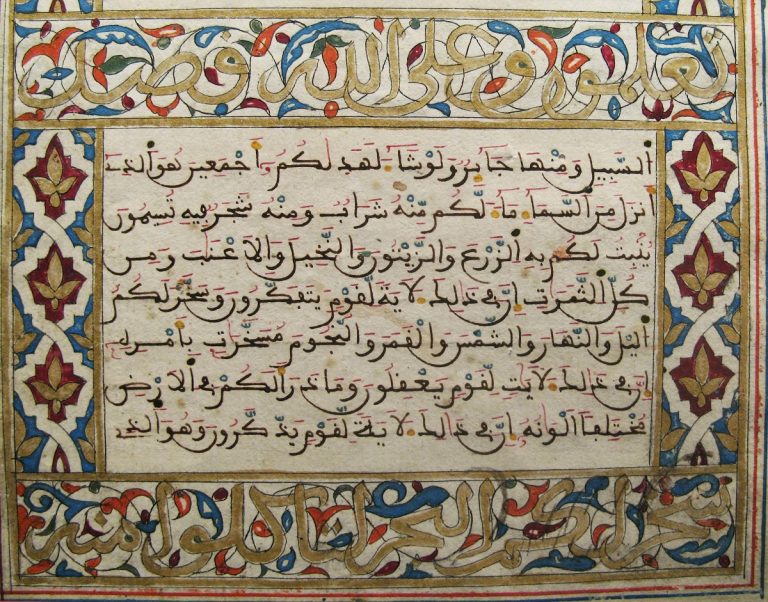 تعلمون وعلى الله قصد
السبيل ومنها جاير ولو شاء لهديكم أجمعين هو الذي
أنزل من السماء ماء لكم منه شراب ومنه شجر فيه تسيمون
ينبت لكم به الزرع والزيتون والنخيل والاعناب ومن
كل الثمرات إن في ذالك لاية لقوم يتفكرون وسخر لكم
اليل والنهار والشمس والقمر والنجوم مسخرات بأمره
إن في ذالك لايات لقوم يعقلون وما ذرأ لكم في الارض
مختلفا الوانه إن في ذالك لاية لقوم يذكرون وهو الذي
سخر لكم البحر لتاكلوا منه